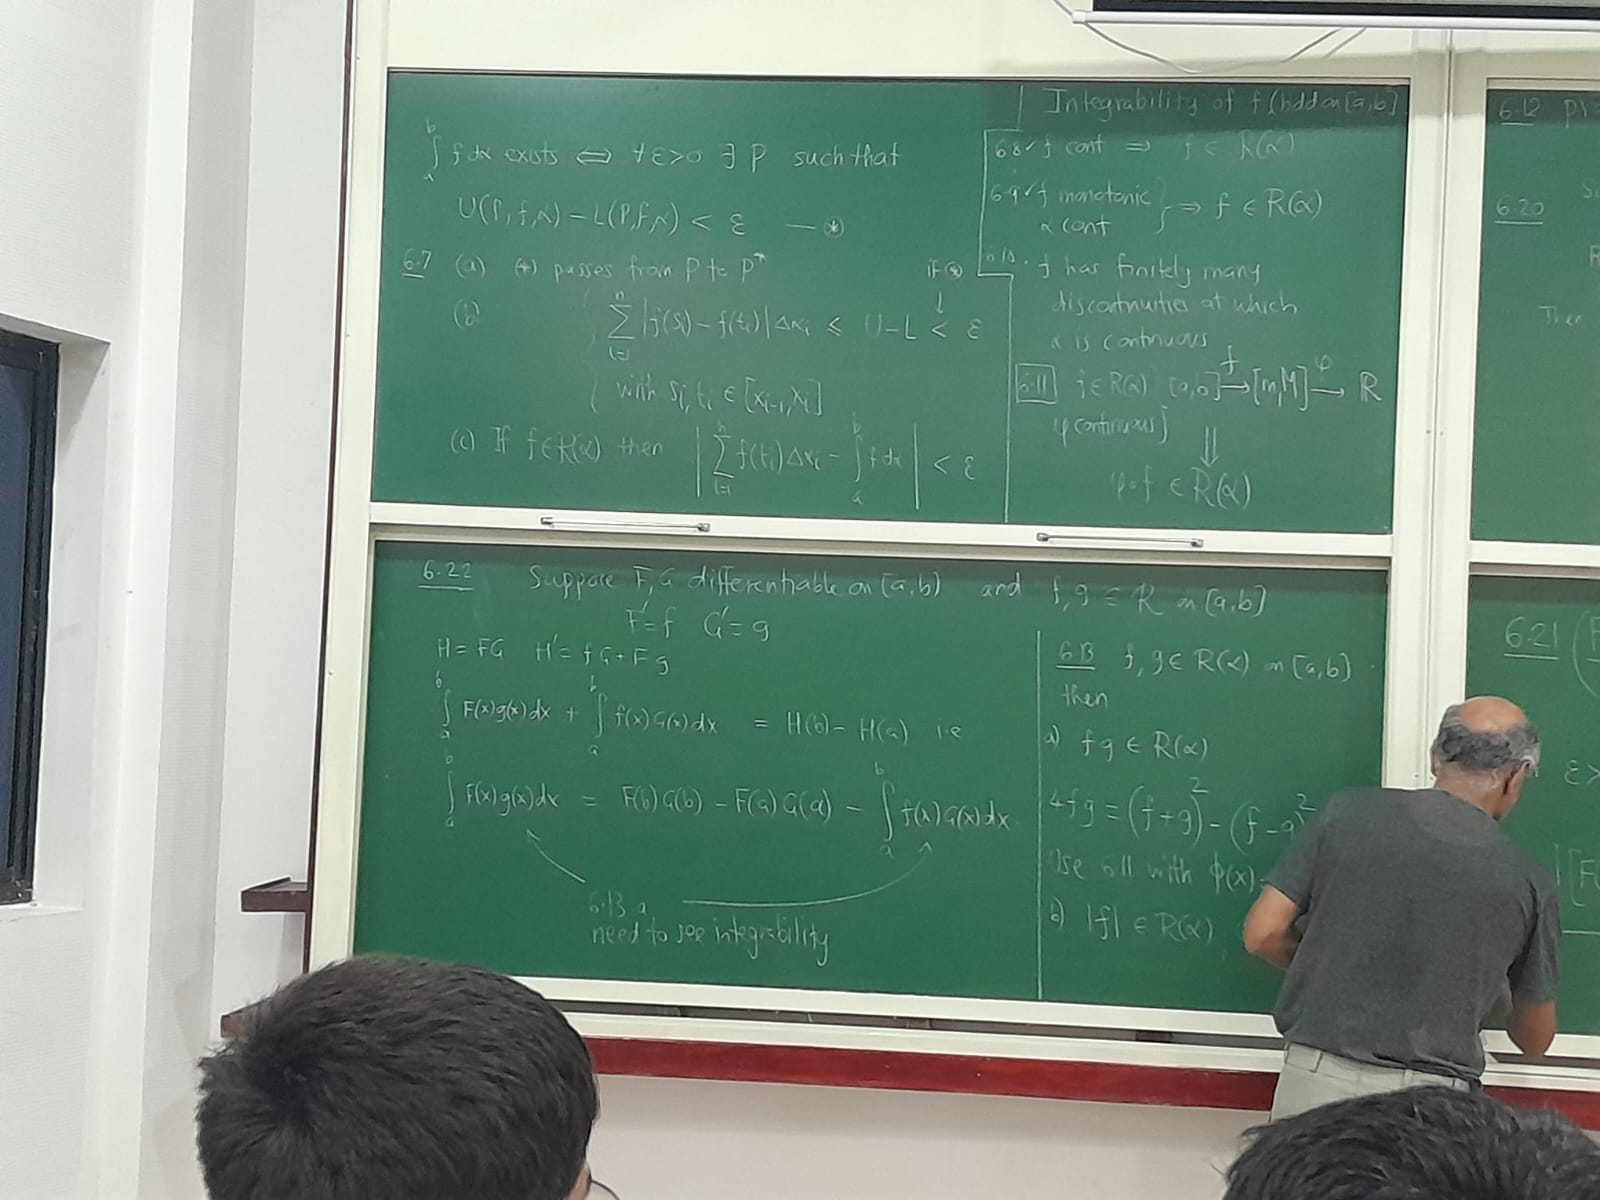 b
∫ f dα exists ⇔ ∀ε>0 ∃ P such that
a
U(P,f,α) – L(P,f,α) < ε —(*)
6.7 (a) (*) passes from P to P*
if (*)
↓
(b) n
∑ |f(si) – f(ti)| Δαi ≤ U–L < ε
i=1
with si, ti ∈ [xi-1, xi]
(c) If f∈R(α) then | n ∑ i=1 f(ti)Δαi – b ∫ a f dα | < ε
Integrability of f (bdd on [a,b]
6.8 ✓ f cont ⇒ f ∈ R(α)
6.9 ✓ f monotonic } ⇒ f ∈ R(α)
α cont
6.10 . f has finitely many
discontinuities at which
α is continuous
6.11 f∈R(α) [a,b] f→ [m,M] φ→ R
φ continuous]
⇓
φ∘f ∈ R(α)
6.12
6.20
Then
6.22 Suppose F,G differentiable on [a,b] and f,g ∈ R on [a,b]
F'=f G'=g
H = FG H' = fG+Fg
b ∫ a F(x)g(x)dx + b ∫ a f(x)G(x)dx = H(b) – H(a) i.e
b ∫ a F(x)g(x)dx = F(b)G(b) – F(a)G(a) – b ∫ a f(x)G(x)dx
6.13 a
need to see integrability
6.13 f,g ∈ R(α) on [a,b]
then
a) fg ∈ R(α)
4fg = (f+g)² – (f–g)²
Use 6.11 with φ(x)
b) |f| ∈ R(α)
6.21
ε>